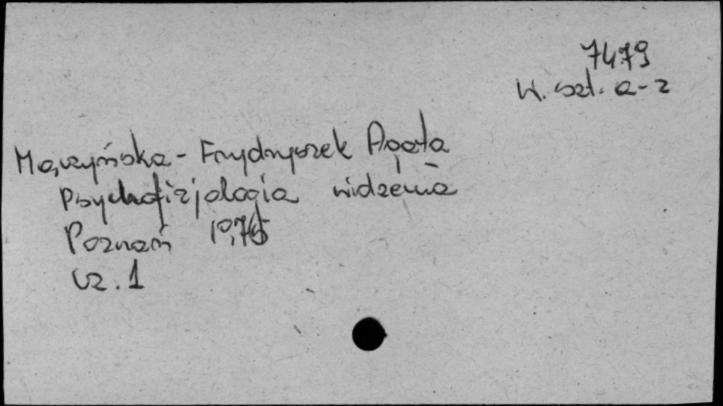 7479
W. szt. a-z
Mączyńska-Frydryszek Agata
Psychofizjologia widzenia
Poznań 1975
cz. 1